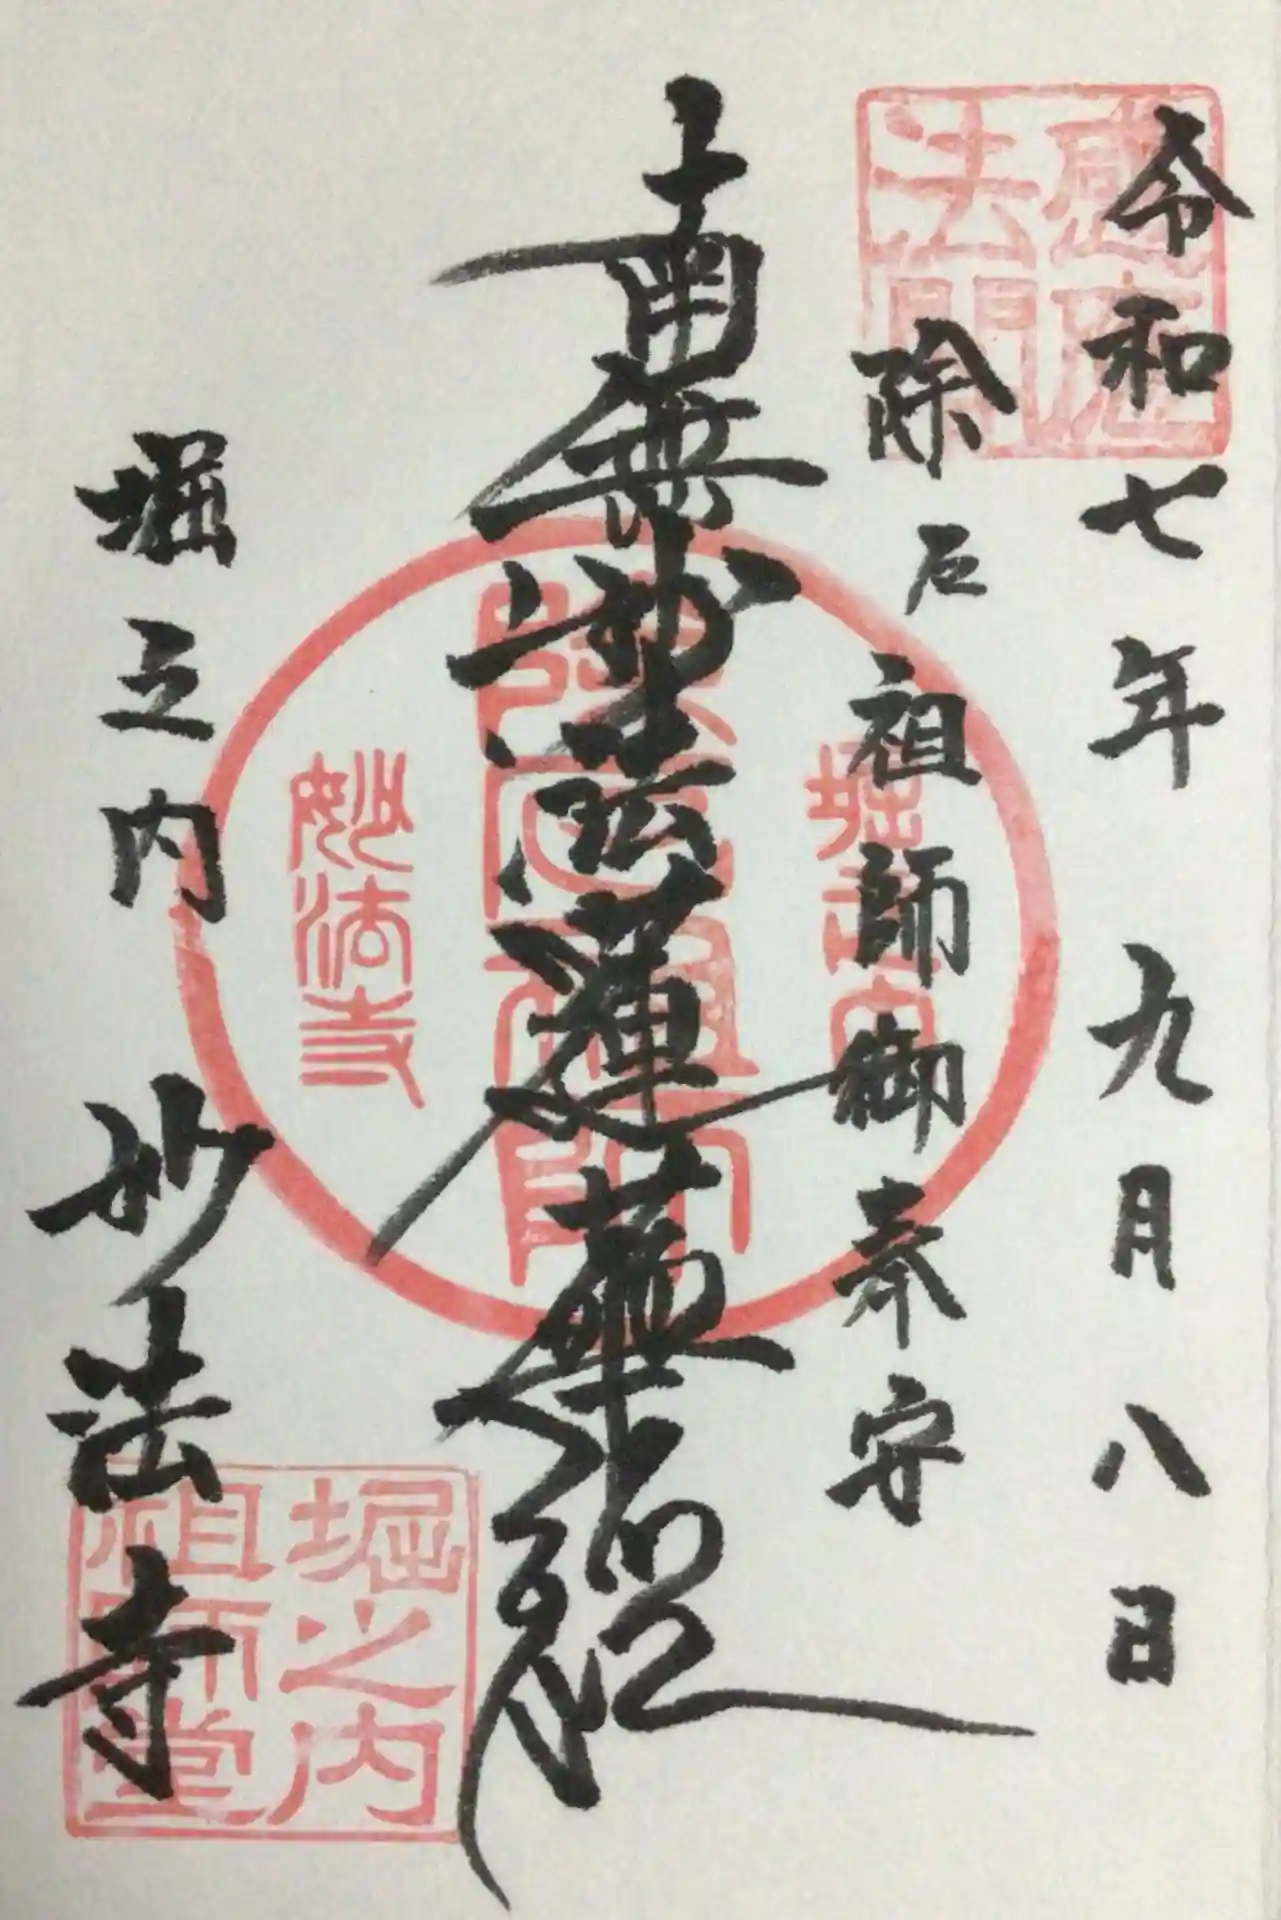 令和七年九月八日
除厄祖師御奉守
南無妙法蓮華経
堀之内
妙法寺
感応
法門
堀之内
除厄祖師
妙法寺
堀之内
祖師堂